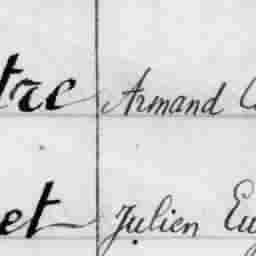 tre Armand
et Julien Eug